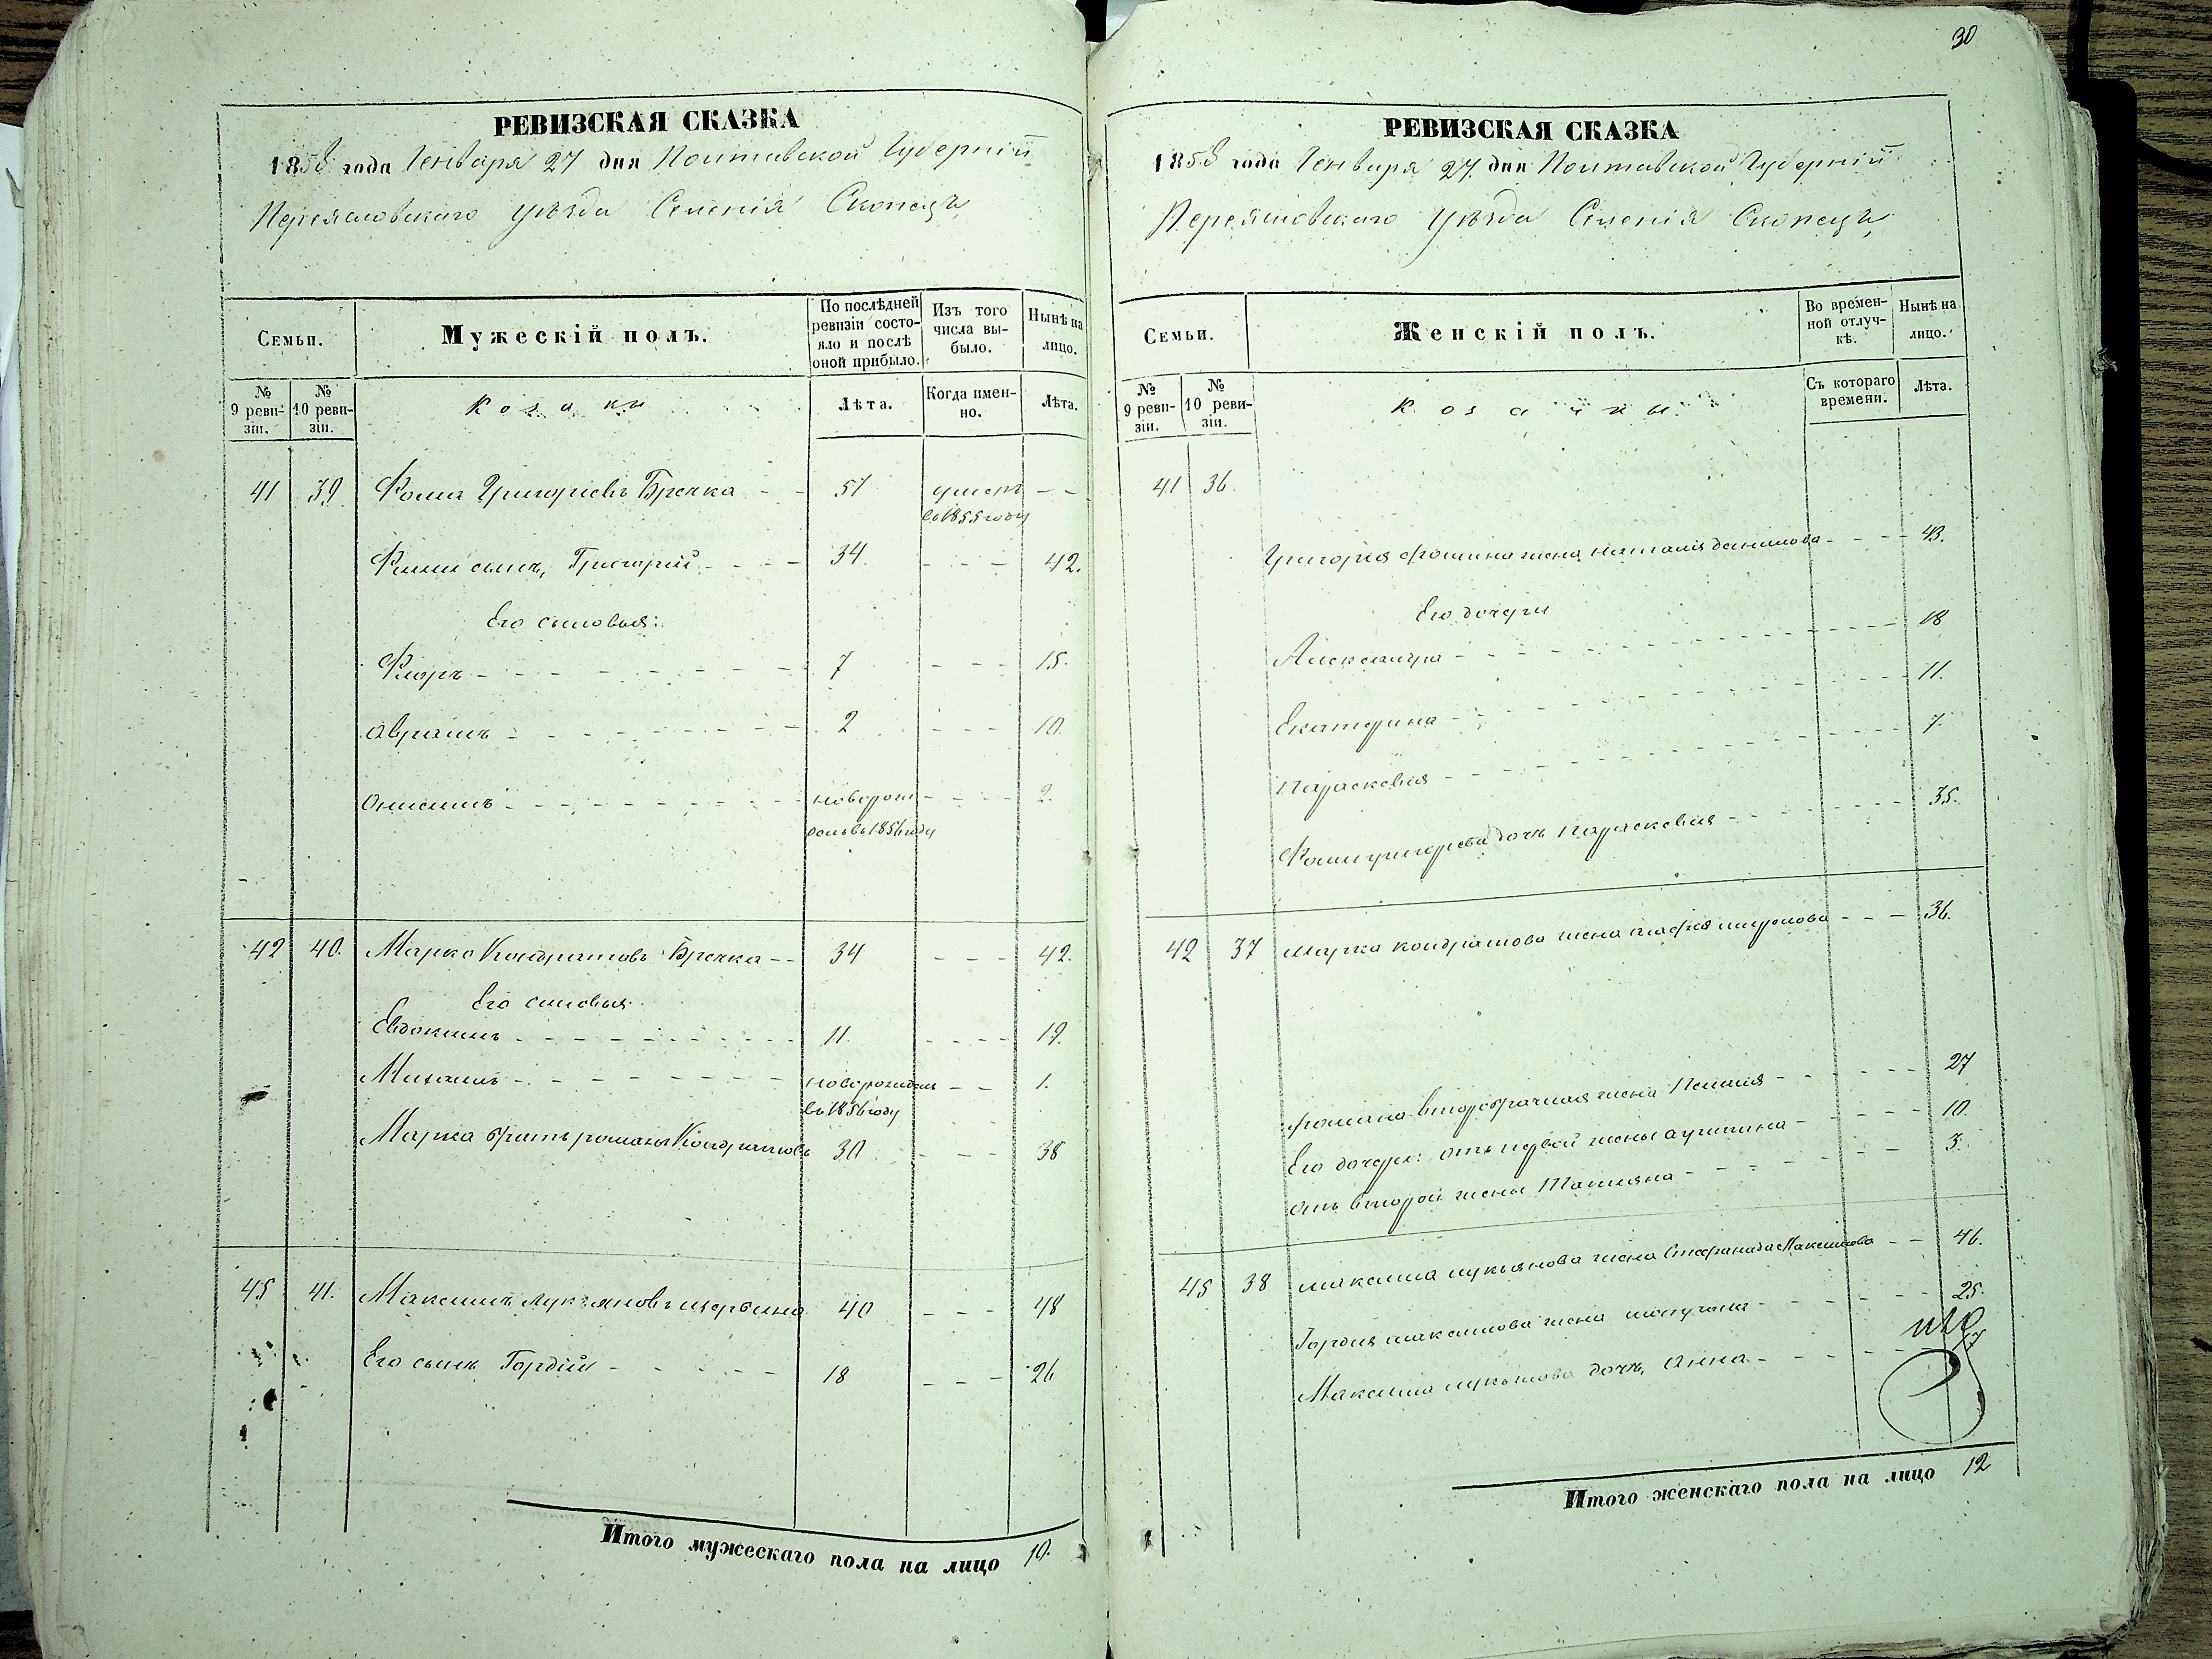 РЕВИЗСКАЯ СКАЗКА
1858 года Генваря 27 дня Полтавской Губерніи
Переясловскаго уѣзда Селенія Скопецъ
Семьи.
Мужескій полъ.
По послѣдней ревизіи состо-
яло и послѣ
оной прибыло.
Изъ того
числа вы-
было.
Нынѣ на
лицо.
№
9 реви-
зіи.
№
10 реви-
зіи.
Козаки
Лѣта.
Когда имен-
но.
Лѣта.
41 39 Фома Григоріевъ Бречка - - 51 умеръ - -
въ 1855 году
Фомы сынъ, Григорій - - - - 34 - - - 42.
Его сыновья:
Флоръ - - - - - - - 7 - - - 15.
Аврамъ - - - - - - - 2 - - - 10.
Онисимъ - - - - - - - новорож - - - 2.
денъ въ 1856 году
42 40. Марко Кондратовъ Бречка - - 34 - - - 42.
Его сыновья
Евдокимъ - - - - - - - 11. - - - 19.
Михаилъ - - - - - - - новорожденъ - - 1.
въ 1856 году
Марка братъ романъ Кондратовъ 30 - - - 38
45 41. Максимъ Лукьяновъ 40 - - - 48
Его сынъ Гордій - - - - - 18 - - - 26
Итого мужескаго пола на лицо 10.
30
РЕВИЗСКАЯ СКАЗКА
1858 года Генваря 27. дня Полтавской Губерніи
Переясловскаго Уѣзда Селенія Скопецъ
Семьи.
Женскій полъ.
Во времен-
ной отлуч-
кѣ.
Нынѣ на
лицо.
№
9 реви-
зіи.
№
10 реви-
зіи.
Козачки
Съ котораго
времени.
Лѣта.
41 36.
Григорія Фомина жена Наталія Данилова - - - - 43.
Его дочери
Александра - - - - - - - 18
Екатерина - - - - - - - 11.
Параскевія - - - - - - - 7.
Фомы григорьева дочь Параскевія - - - - - 35.
42 37 марка кондратова жена - - - 36.
романа второбрачная жена - - - - - 27
Его дочери: отъ первой жены - - - - 10.
отъ второй жены Татьяна - - - - - 3.
45 38 максима лукьянова жена Стефанида Максимова - - 46.
Гордія максимова жена - - - - - 25.
Максима лукьянова дочь, Анна - - - - 17
Итого женскаго пола на лицо 12